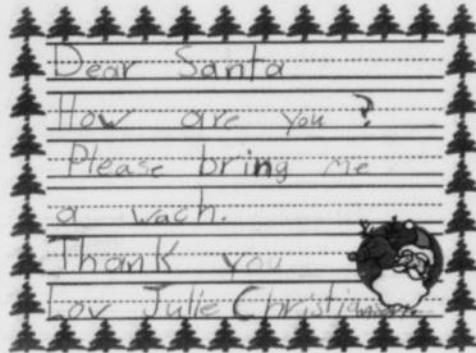 Dear Santa
How are you?
Please bring me
a wach.
Thank you
Lov Julie